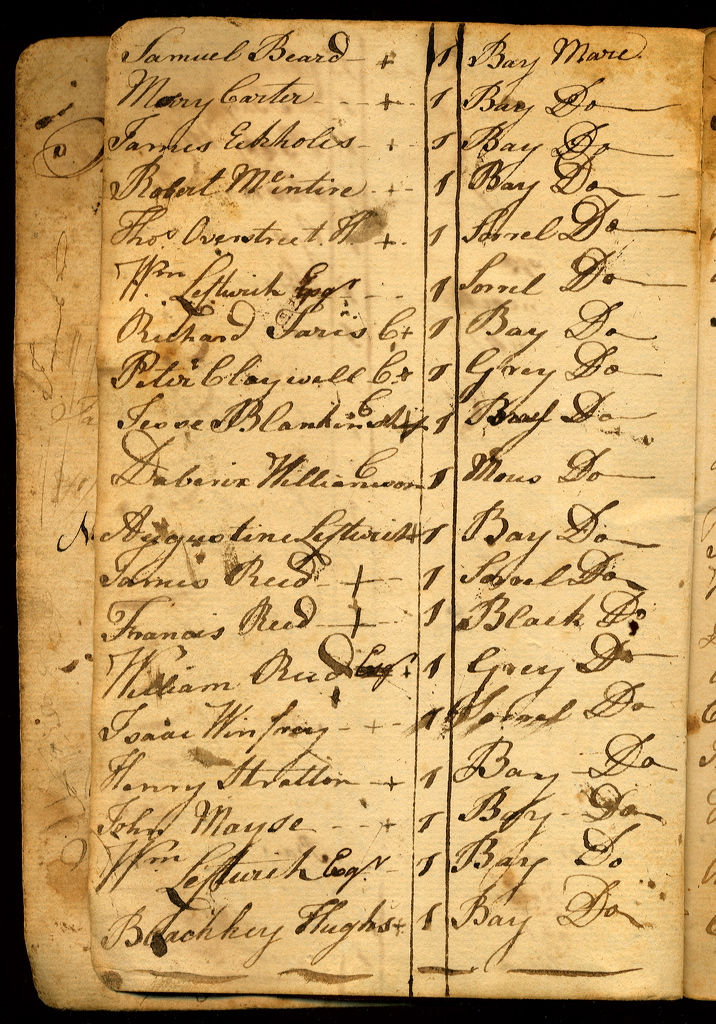 Samuel Beard - + 1 Bay Mare
Mary Carter - - + 1 Bay Do
James Eckholes - + 1 Bay Do
Robert McIntire - + 1 Bay Do
Thos Overstreet H + 1 Sorrel Do
Wm Leftwich Esqr - - 1 Sorrel Do
Richard Faris C + 1 Bay Do
Peter Claywell C + 1 Grey Do
Jesse Blankinship C + 1 Bay Do
Williamson C 1 Mous Do
Augustine Leftwich + 1 Bay Do
James Reed - + - 1 Sorrel Do
Francis Reed - + - 1 Black Do
William Reed Esqr + 1 Grey Do
Isaac Winfrey - + - 1 Sorrel Do
Henry Stratton - + 1 Bay Do
John Mayse - - + 1 Bay Do
Wm Leftwich Esqr 1 Bay Do
Blachkey Hughs + 1 Bay Do